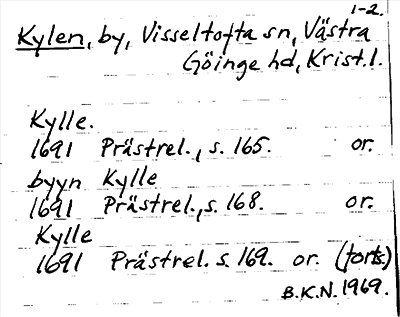 1-2.
Kylen, by, Visseltofta sn, Västra
Göinge hd, Krist.l.
Kylle.
1691 Prästrel., s. 165. or.
byyn Kylle
1691 Prästrel., s. 168. or.
Kylle
1691 Prästrel. s. 169. or. (forts.)
B.K.N. 1969.